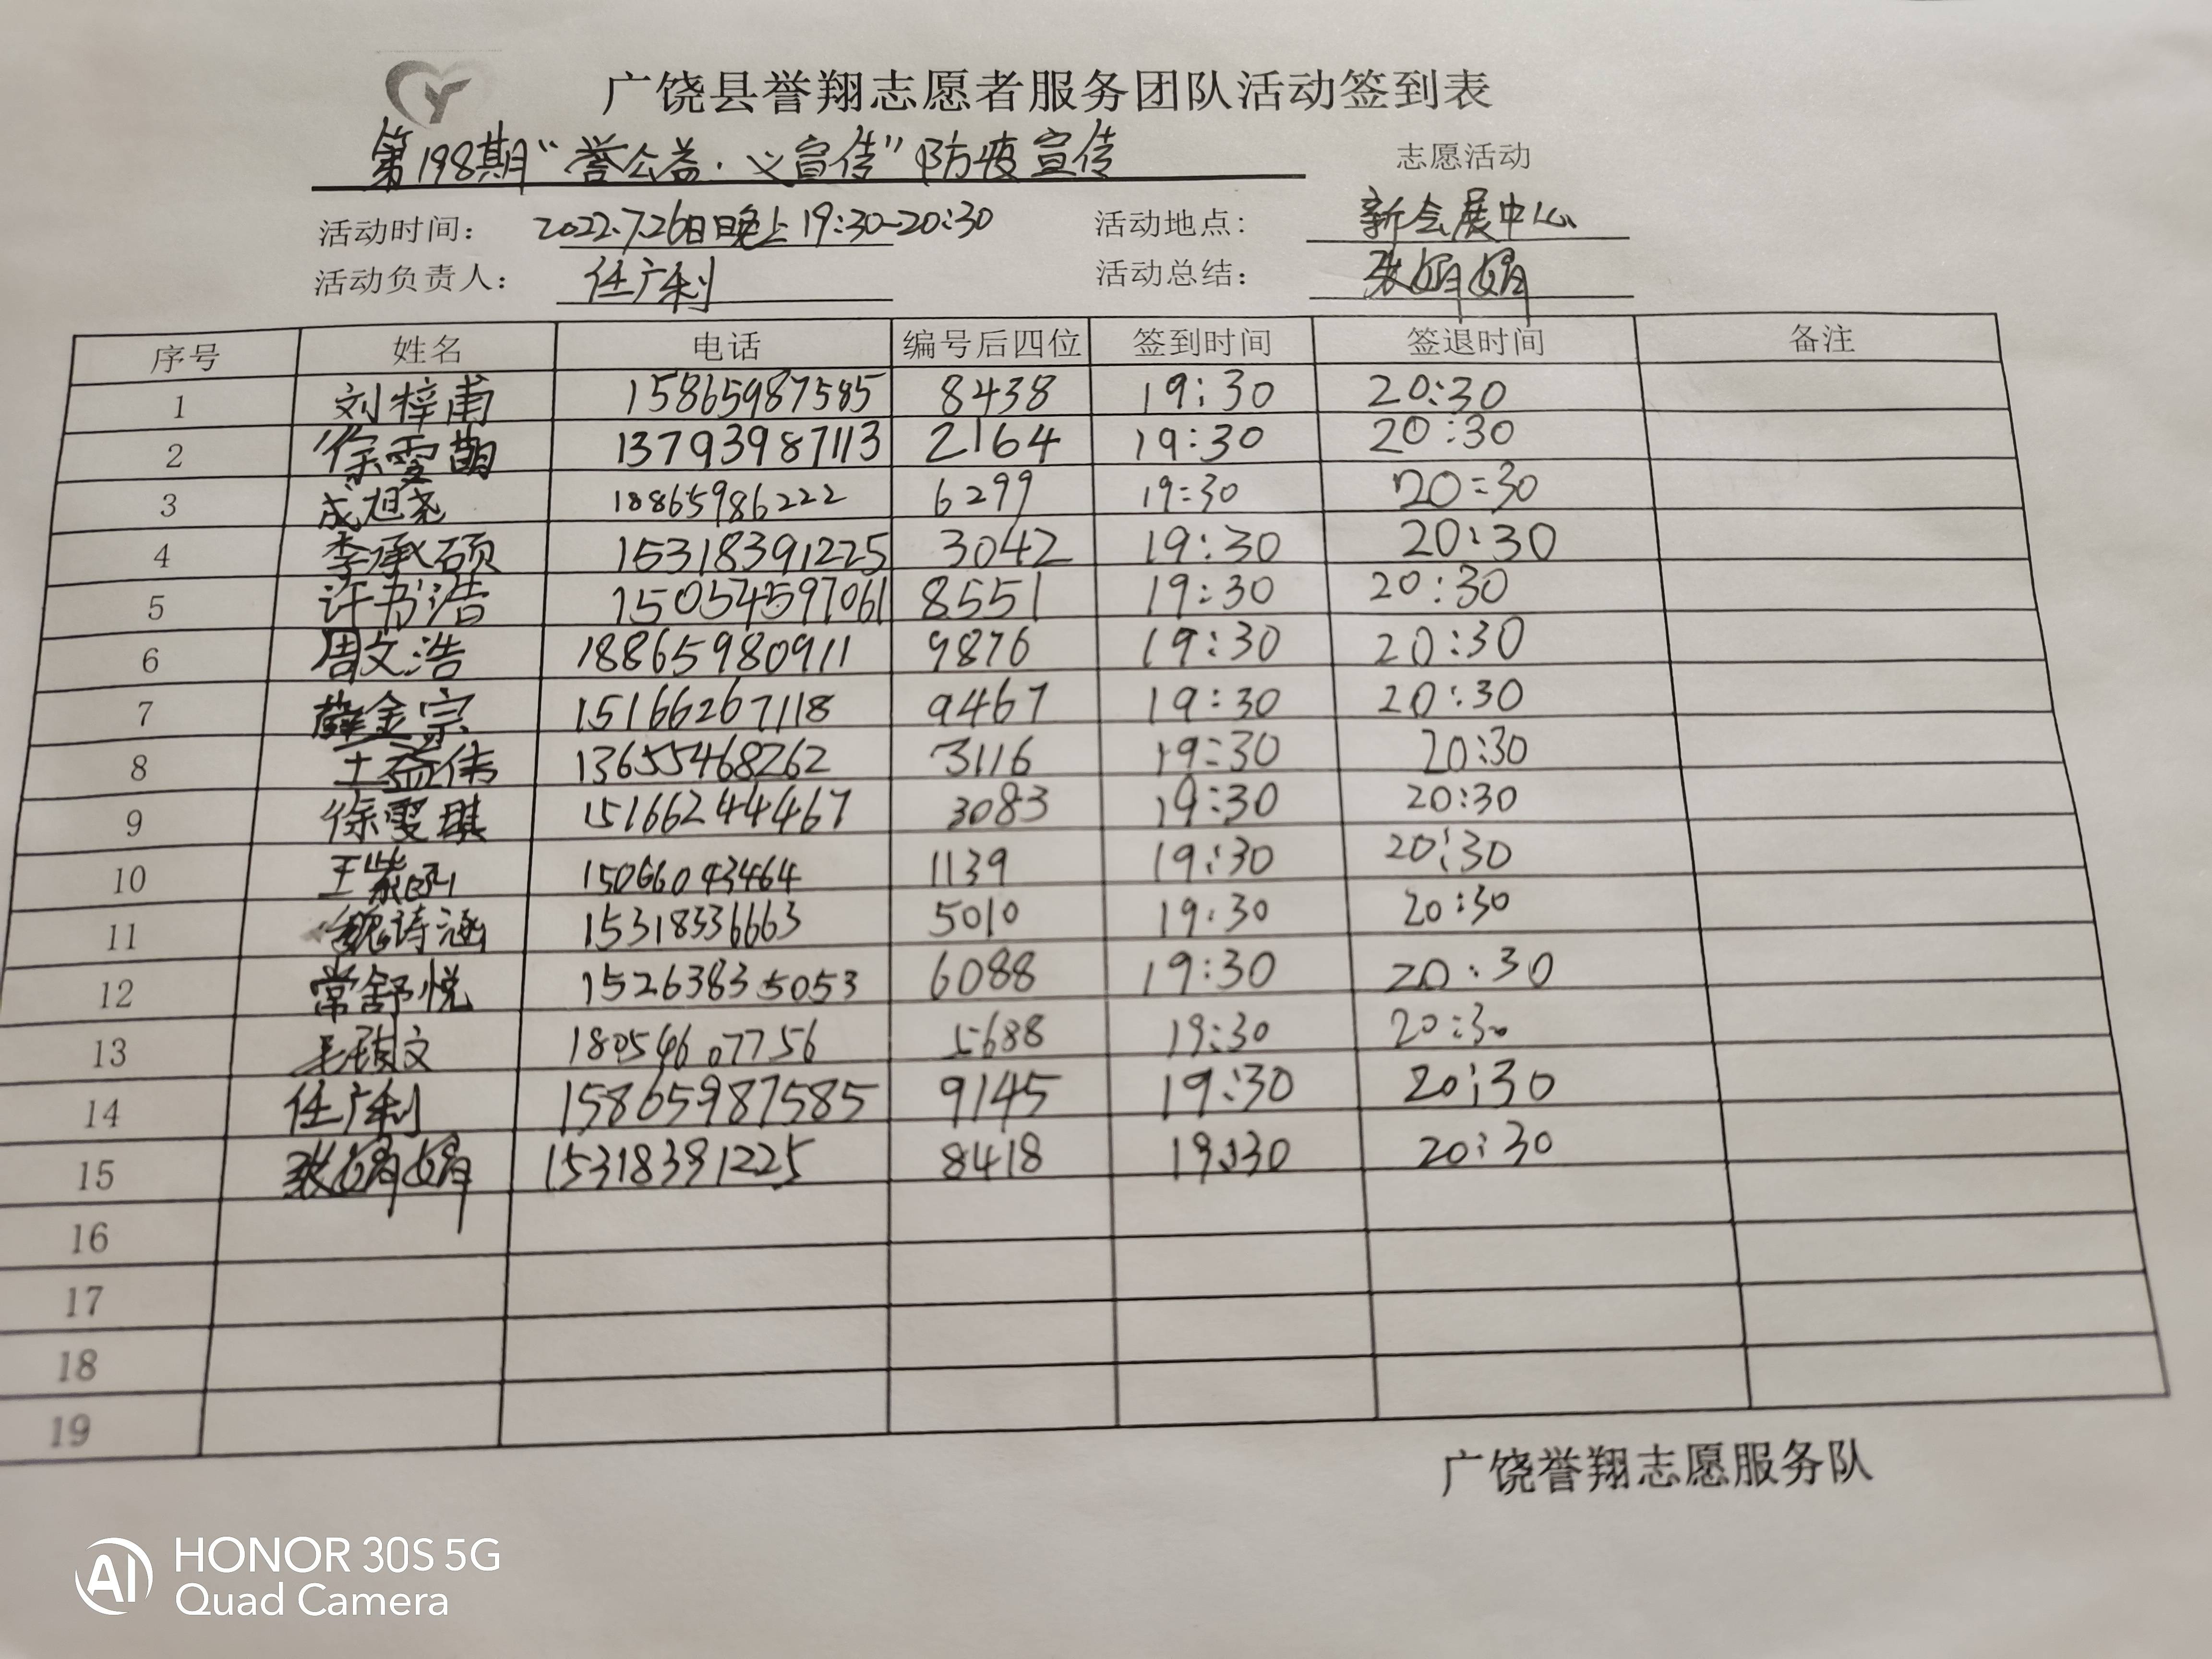 广饶县誉翔志愿者服务团队活动签到表
第198期“誉公益·义宣传”防疫宣传 志愿活动
活动时间： 2022.7.26日晚上19:30-20:30 活动地点： 新会展中心
活动负责人： 任广利 活动总结： 张娟娟
序号 姓名 电话 编号后四位 签到时间 签退时间 备注
1 刘梓甫 15865987585 8438 19:30 20:30
2 徐雯萌 13793987113 2164 19:30 20:30
3 成旭尧 18865986222 6299 19:30 20:30
4 李承硕 15318391225 3042 19:30 20:30
5 许书浩 15054597061 8551 19:30 20:30
6 周文浩 18865980911 9876 19:30 20:30
7 薛金宗 15166267118 9467 19:30 20:30
8 王益伟 13655468262 3116 19:30 20:30
9 徐雯琪 15166244467 3083 19:30 20:30
10 王紫函 15066043464 1139 19:30 20:30
11 魏诗涵 15318336663 5010 19:30 20:30
12 常舒悦 15263835053 6088 19:30 20:30
13 18054607756 5688 19:30 20:30
14 任广利 15865987585 9145 19:30 20:30
15 张娟娟 15318391225 8418 19:30 20:30
16
17
18
19
广饶誉翔志愿服务队
AI HONOR 30S 5G
Quad Camera